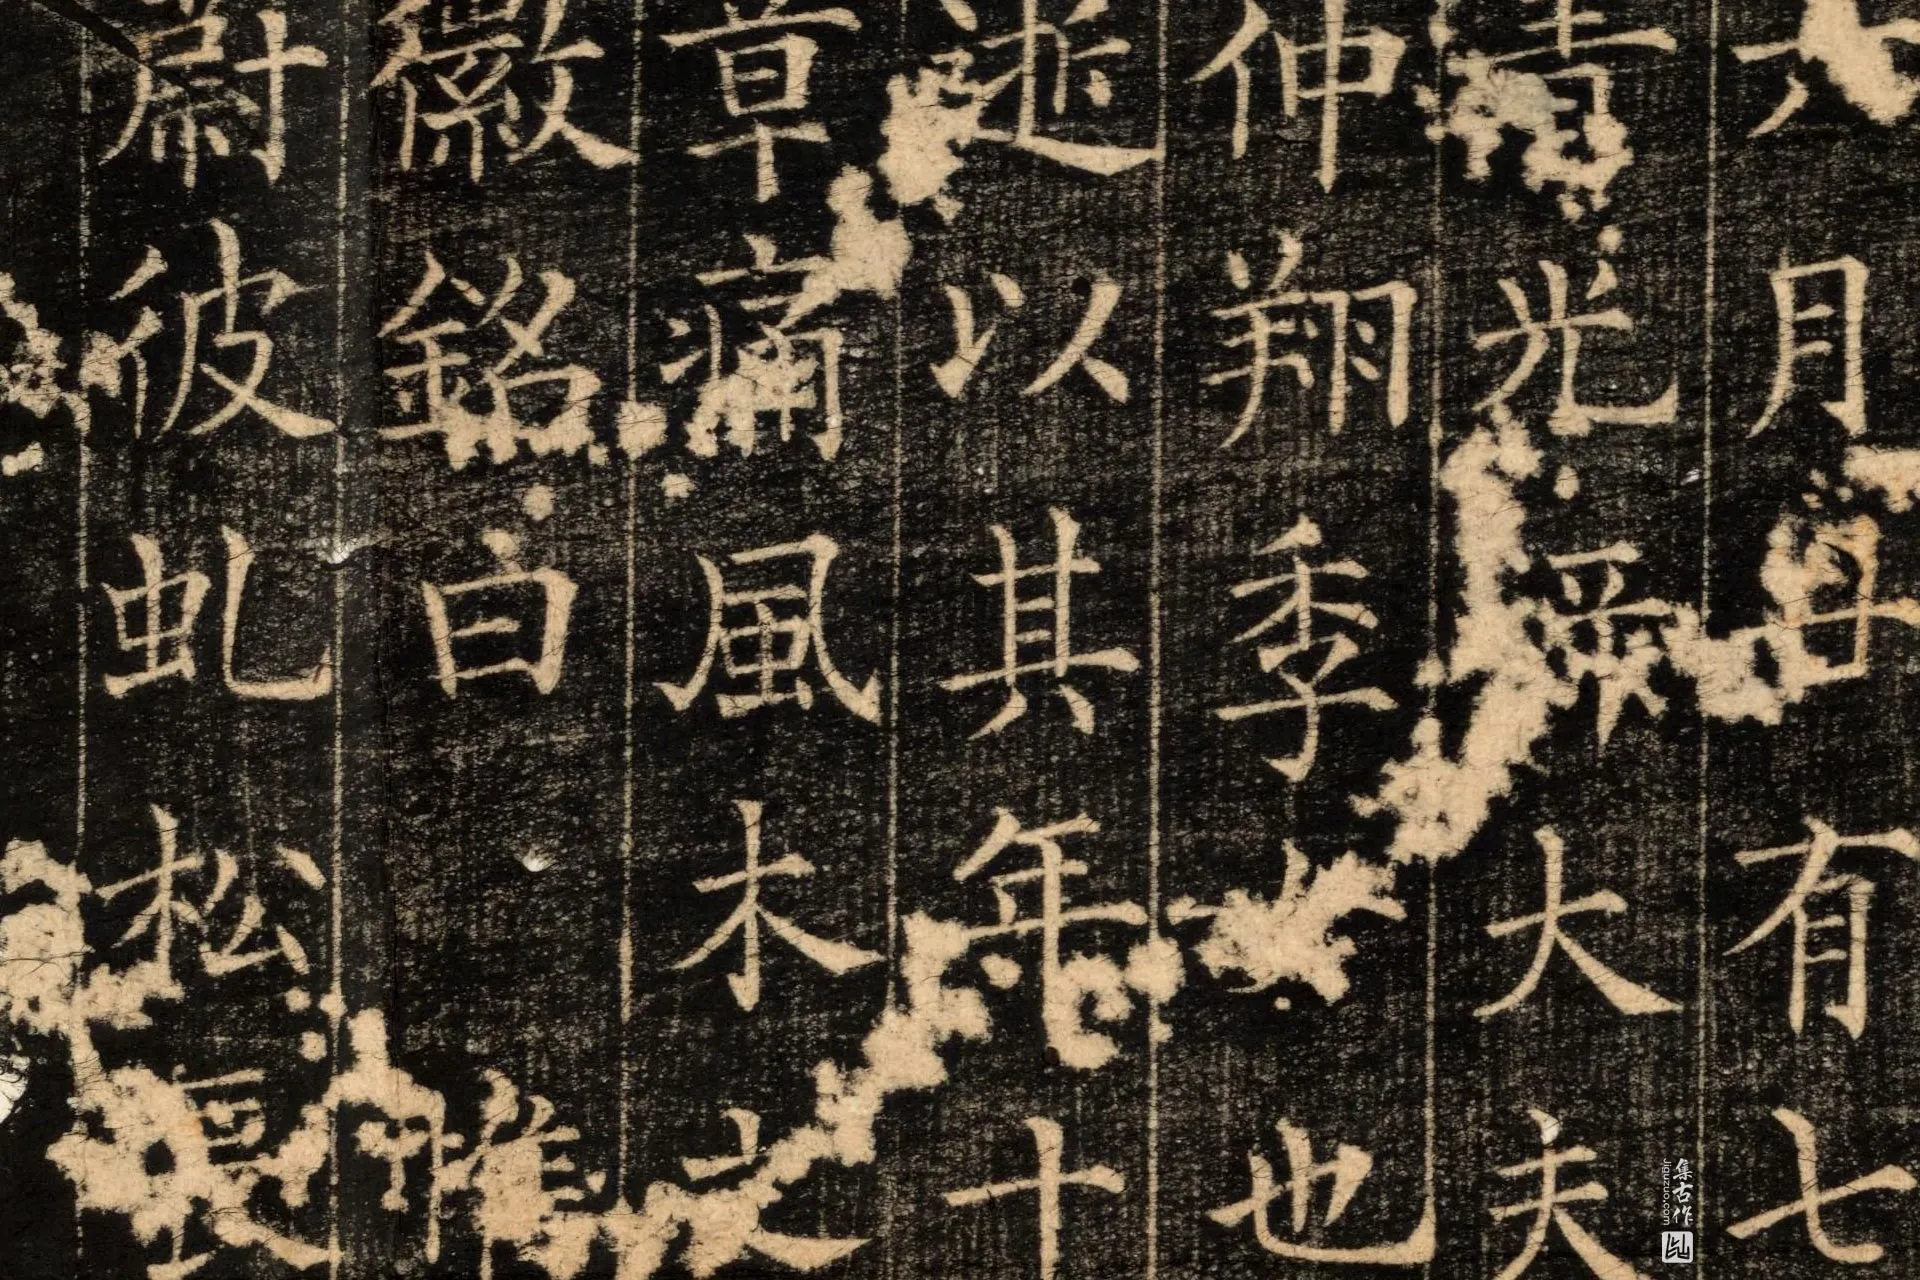 月有七
青光大夫
仲翔季也
以其年十
章痛風木之
徽銘曰惟
蔚彼虬松
集古作
jiguzuo.com